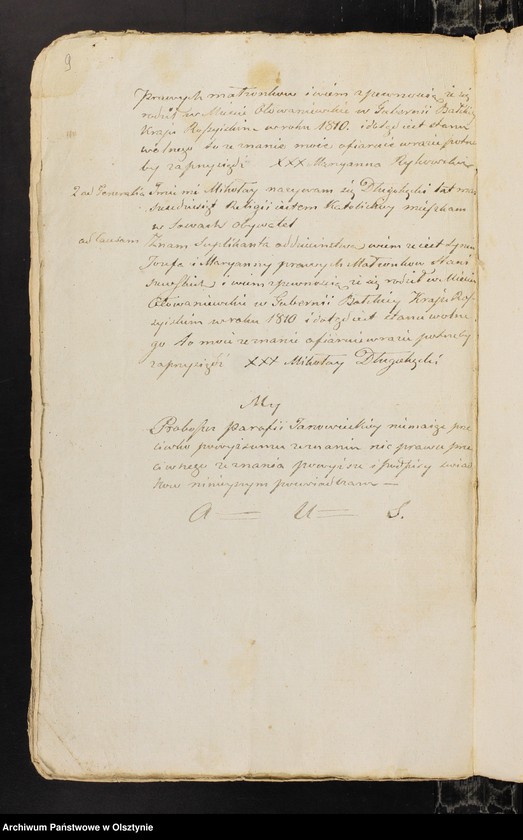 9
prawych małżonków i wiem z pewnością iż się
rodził w Mieście w Gubernii
Kraju Rossyiskim w roku 1810. i dotąd iest stanu
wolnego to zeznanie moie ofiaruie w razie potrze
by zaprzysiądz XXX Maryanna Rykowska
2 ad Generalia Imie mi Mikołay nazywam się Długołęcki lat mam
sześćdziesiąt Religii iestem Katolickiey mieszkam
w obywatel
ad Causam Znam Suplikanta od dzieciństwa, wiem że iest synem
Jozefa i Maryanny prawych Małżonków
i wiem z pewnością iż się rodził w Mieście
w Gubernii Kraju Ros
syiskim w roku 1810 i dotąd iest stanu wolne
go to moie zeznanie ofiaruie w razie potrzeby
zaprzysiądz XXX Mikołay Długołęcki
My
Proboszcz Parafii Janowieckiey nie maiąc prze
ciwko powyższemu zeznaniu nic prawu prze
ciwnego zeznania powyższe i podpisy świad
kow ninieyszym poświadczam —
A = U = S.
Archiwum Państwowe w Olsztynie